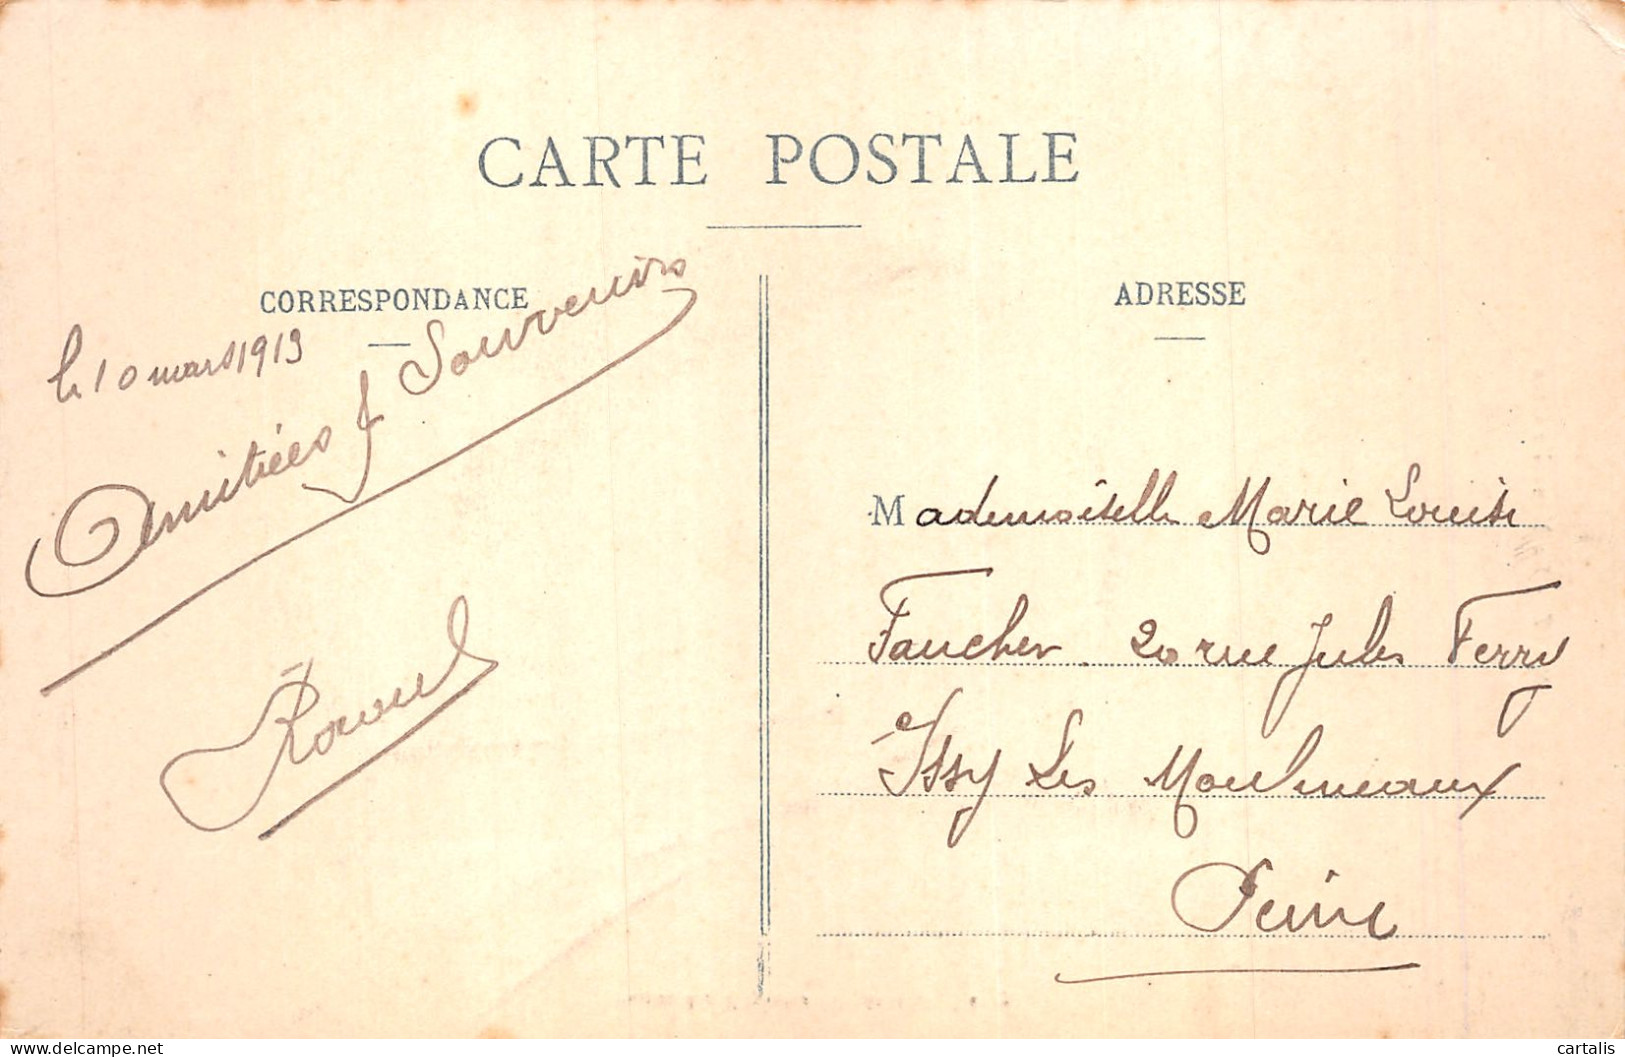 CARTE POSTALE
CORRESPONDANCE
le 10 mars 1913
Amitiés & Souvenirs
Raoul
ADRESSE
Mademoiselle Marie Louise
Faucher 20 rue Jules Ferry
Issy Les Moulineaux
Seine
delcampe.net
cartalis